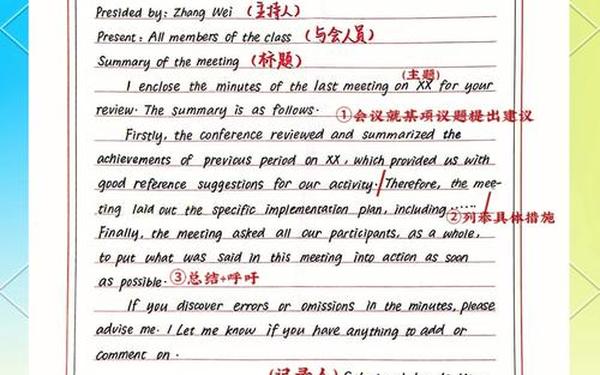 Presided by: Zhang Wei (主持人)
Present: All members of the class (与会人员)
Summary of the meeting (标题)
(主题)
I enclose the minutes of the last meeting on XX for your
review. The summary is as follows. ①会议就某项议题提出建议
Firstly, the conference reviewed and summarized the
achievements of previous period on XX, which provided us with
good reference suggestions for our activity. Therefore, the mee-
ting laid out the specific implementation plan, including......
②列举具体措施
Finally, the meeting asked all our participants, as a whole,
to put what was said in this meeting into action as soon
as possible. ③总结+呼吁
If you discover errors or omissions in the minutes, please
advise me. I Let me know if you have anything to add or
comment on.